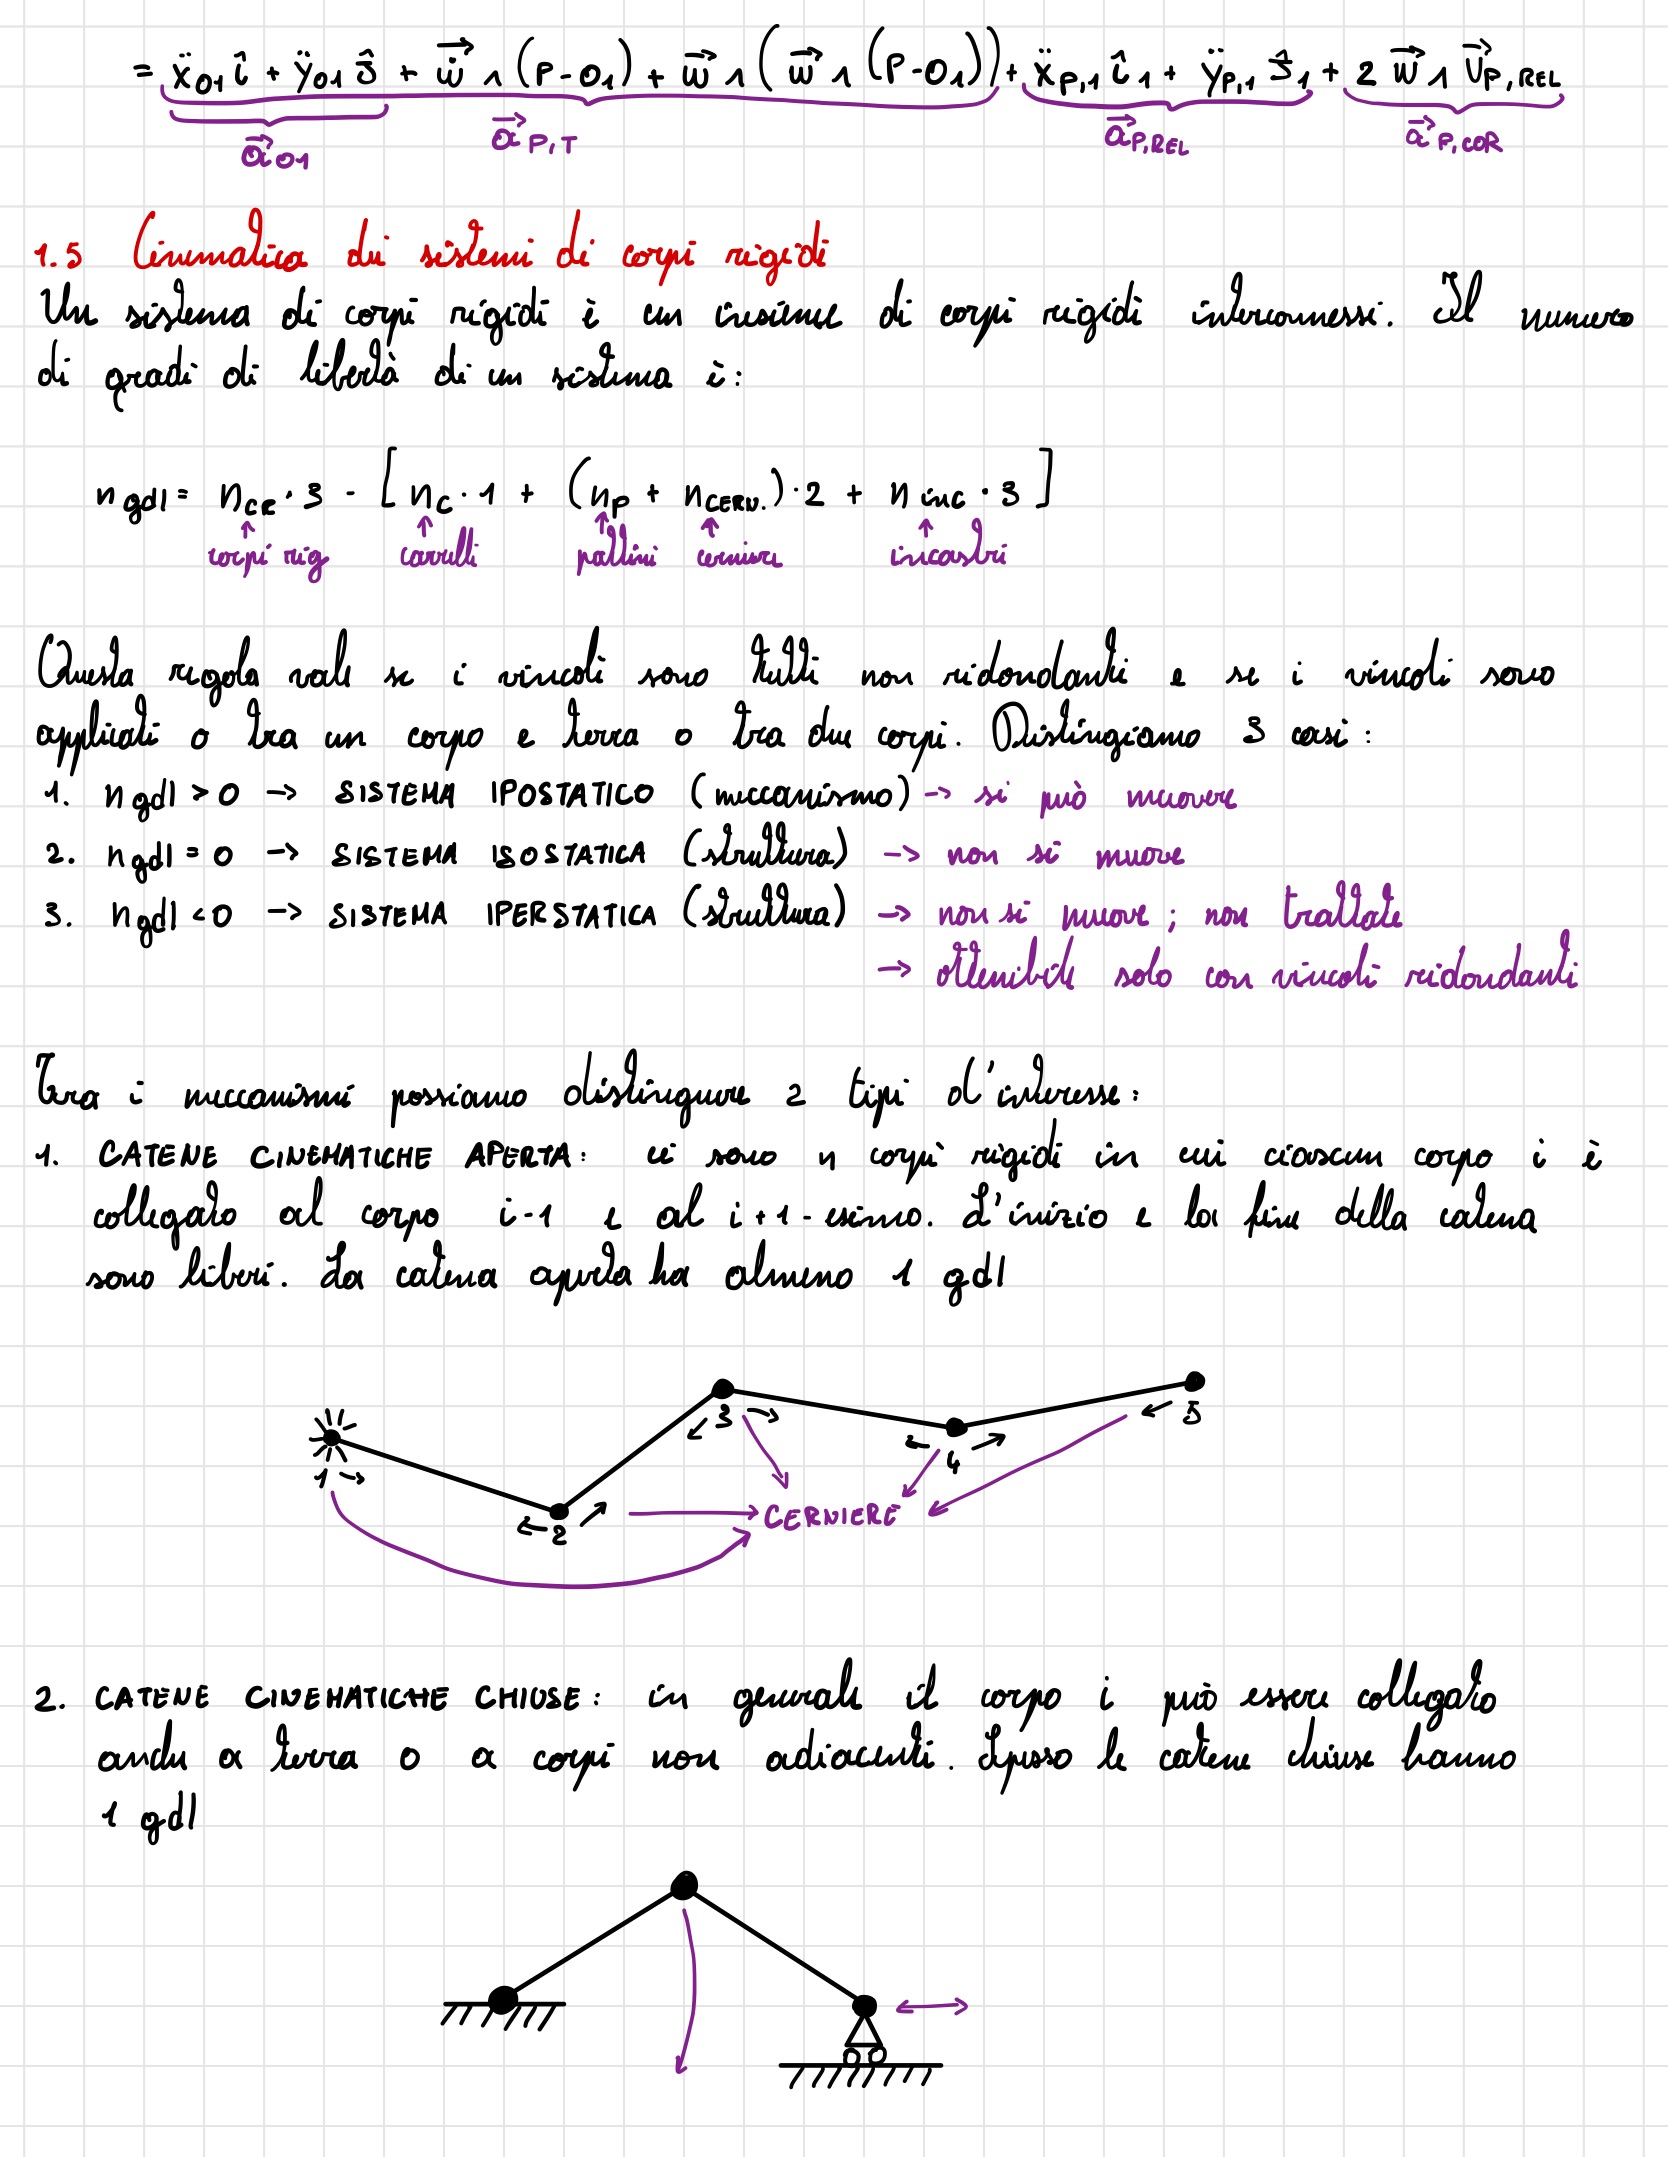 = ẍ_O1 î + ÿ_O1 ĵ + \vec{ẇ} ∧ (P-O1) + \vec{w} ∧ (\vec{w} ∧ (P-O1)) + ẍ_P,1 î_1 + ÿ_P,1 ĵ_1 + 2 \vec{w} ∧ \vec{v}_P,REL
\vec{a}_O1 \vec{a}_P,T \vec{a}_P,REL \vec{a}_P,COR
1.5 Cinematica dei sistemi di corpi rigidi
Un sistema di corpi rigidi è un insieme di corpi rigidi interconnessi. Il numero
di gradi di libertà di un sistema è:
n gdl = n_CR · 3 - [ n_C · 1 + (n_P + n_CERN.) · 2 + n_inc · 3 ]
↑ ↑ ↑ ↑ ↑
corpi rig carrelli pattini cerniere incastri
Questa regola vale se i vincoli sono tutti non ridondanti e se i vincoli sono
applicati o tra un corpo e terra o tra due corpi. Distingiamo 3 casi:
1. n gdl > 0 → SISTEMA IPOSTATICO (meccanismo) → si può muovere
2. n gdl = 0 → SISTEMA ISOSTATICA (struttura) → non si muove
3. n gdl < 0 → SISTEMA IPERSTATICA (struttura) → non si muove ; non trattate
→ ottenibile solo con vincoli ridondanti
Tra i meccanismi possiamo distinguere 2 tipi d'interesse:
1. CATENE CINEMATICHE APERTA: ci sono n corpi rigidi in cui ciascun corpo i è
collegato al corpo i-1 e al i+1-esimo. L'inizio e la fine della catena
sono liberi. La catena aperta ha almeno 1 gdl
1 → ← 2 → ← 3 → ← 4 → ← 5
CERNIERE
2. CATENE CINEMATICHE CHIUSE: in generale il corpo i può essere collegato
anche a terra o a corpi non adiacenti. Spesso le catene chiuse hanno
1 gdl